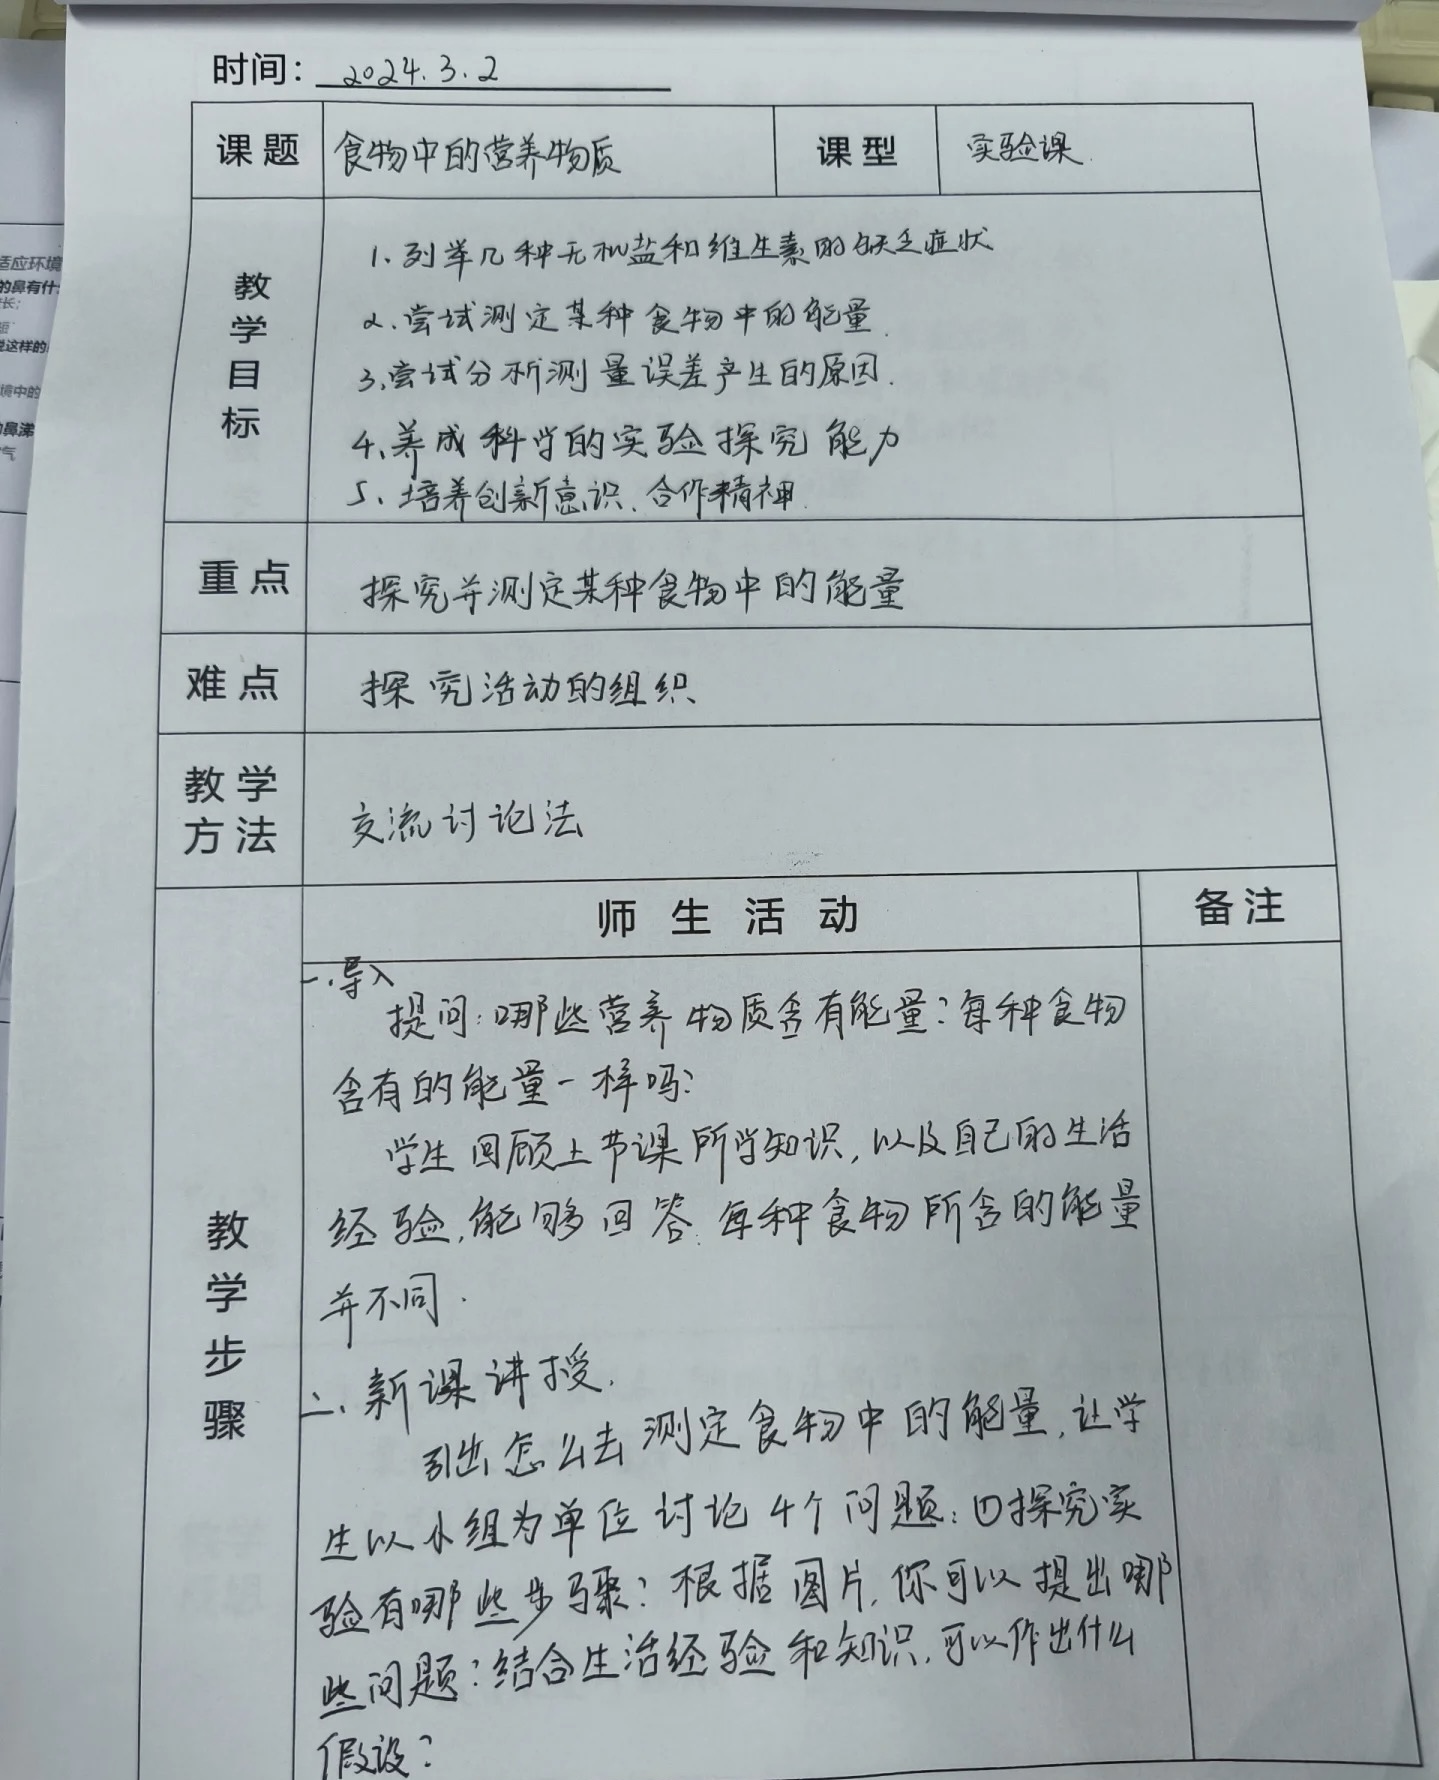 时间：2024.3.2
课题 食物中的营养物质 课型 实验课
教学目标
1.列举几种无机盐和维生素的缺乏症状
2.尝试测定某种食物中的能量.
3.尝试分析测量误差产生的原因.
4.养成科学的实验探究能力
5.培养创新意识、合作精神.
重点 探究并测定某种食物中的能量
难点 探究活动的组织
教学方法 交流讨论法
师生活动 备注
教学步骤
一.导入
提问:哪些营养物质含有能量?每种食物
含有的能量一样吗?
学生回顾上节课所学知识,以及自己的生活
经验,能够回答:每种食物所含的能量
并不同.
二、新课讲授.
引出怎么去测定食物中的能量,让学
生以小组为单位讨论4个问题:(1)探究实
验有哪些步骤?根据图片,你可以提出哪
些问题?结合生活经验和知识,可以作出什么
假设?
适应环境
的鼻有什
长;
说这样的
境中的
鼻涕
气